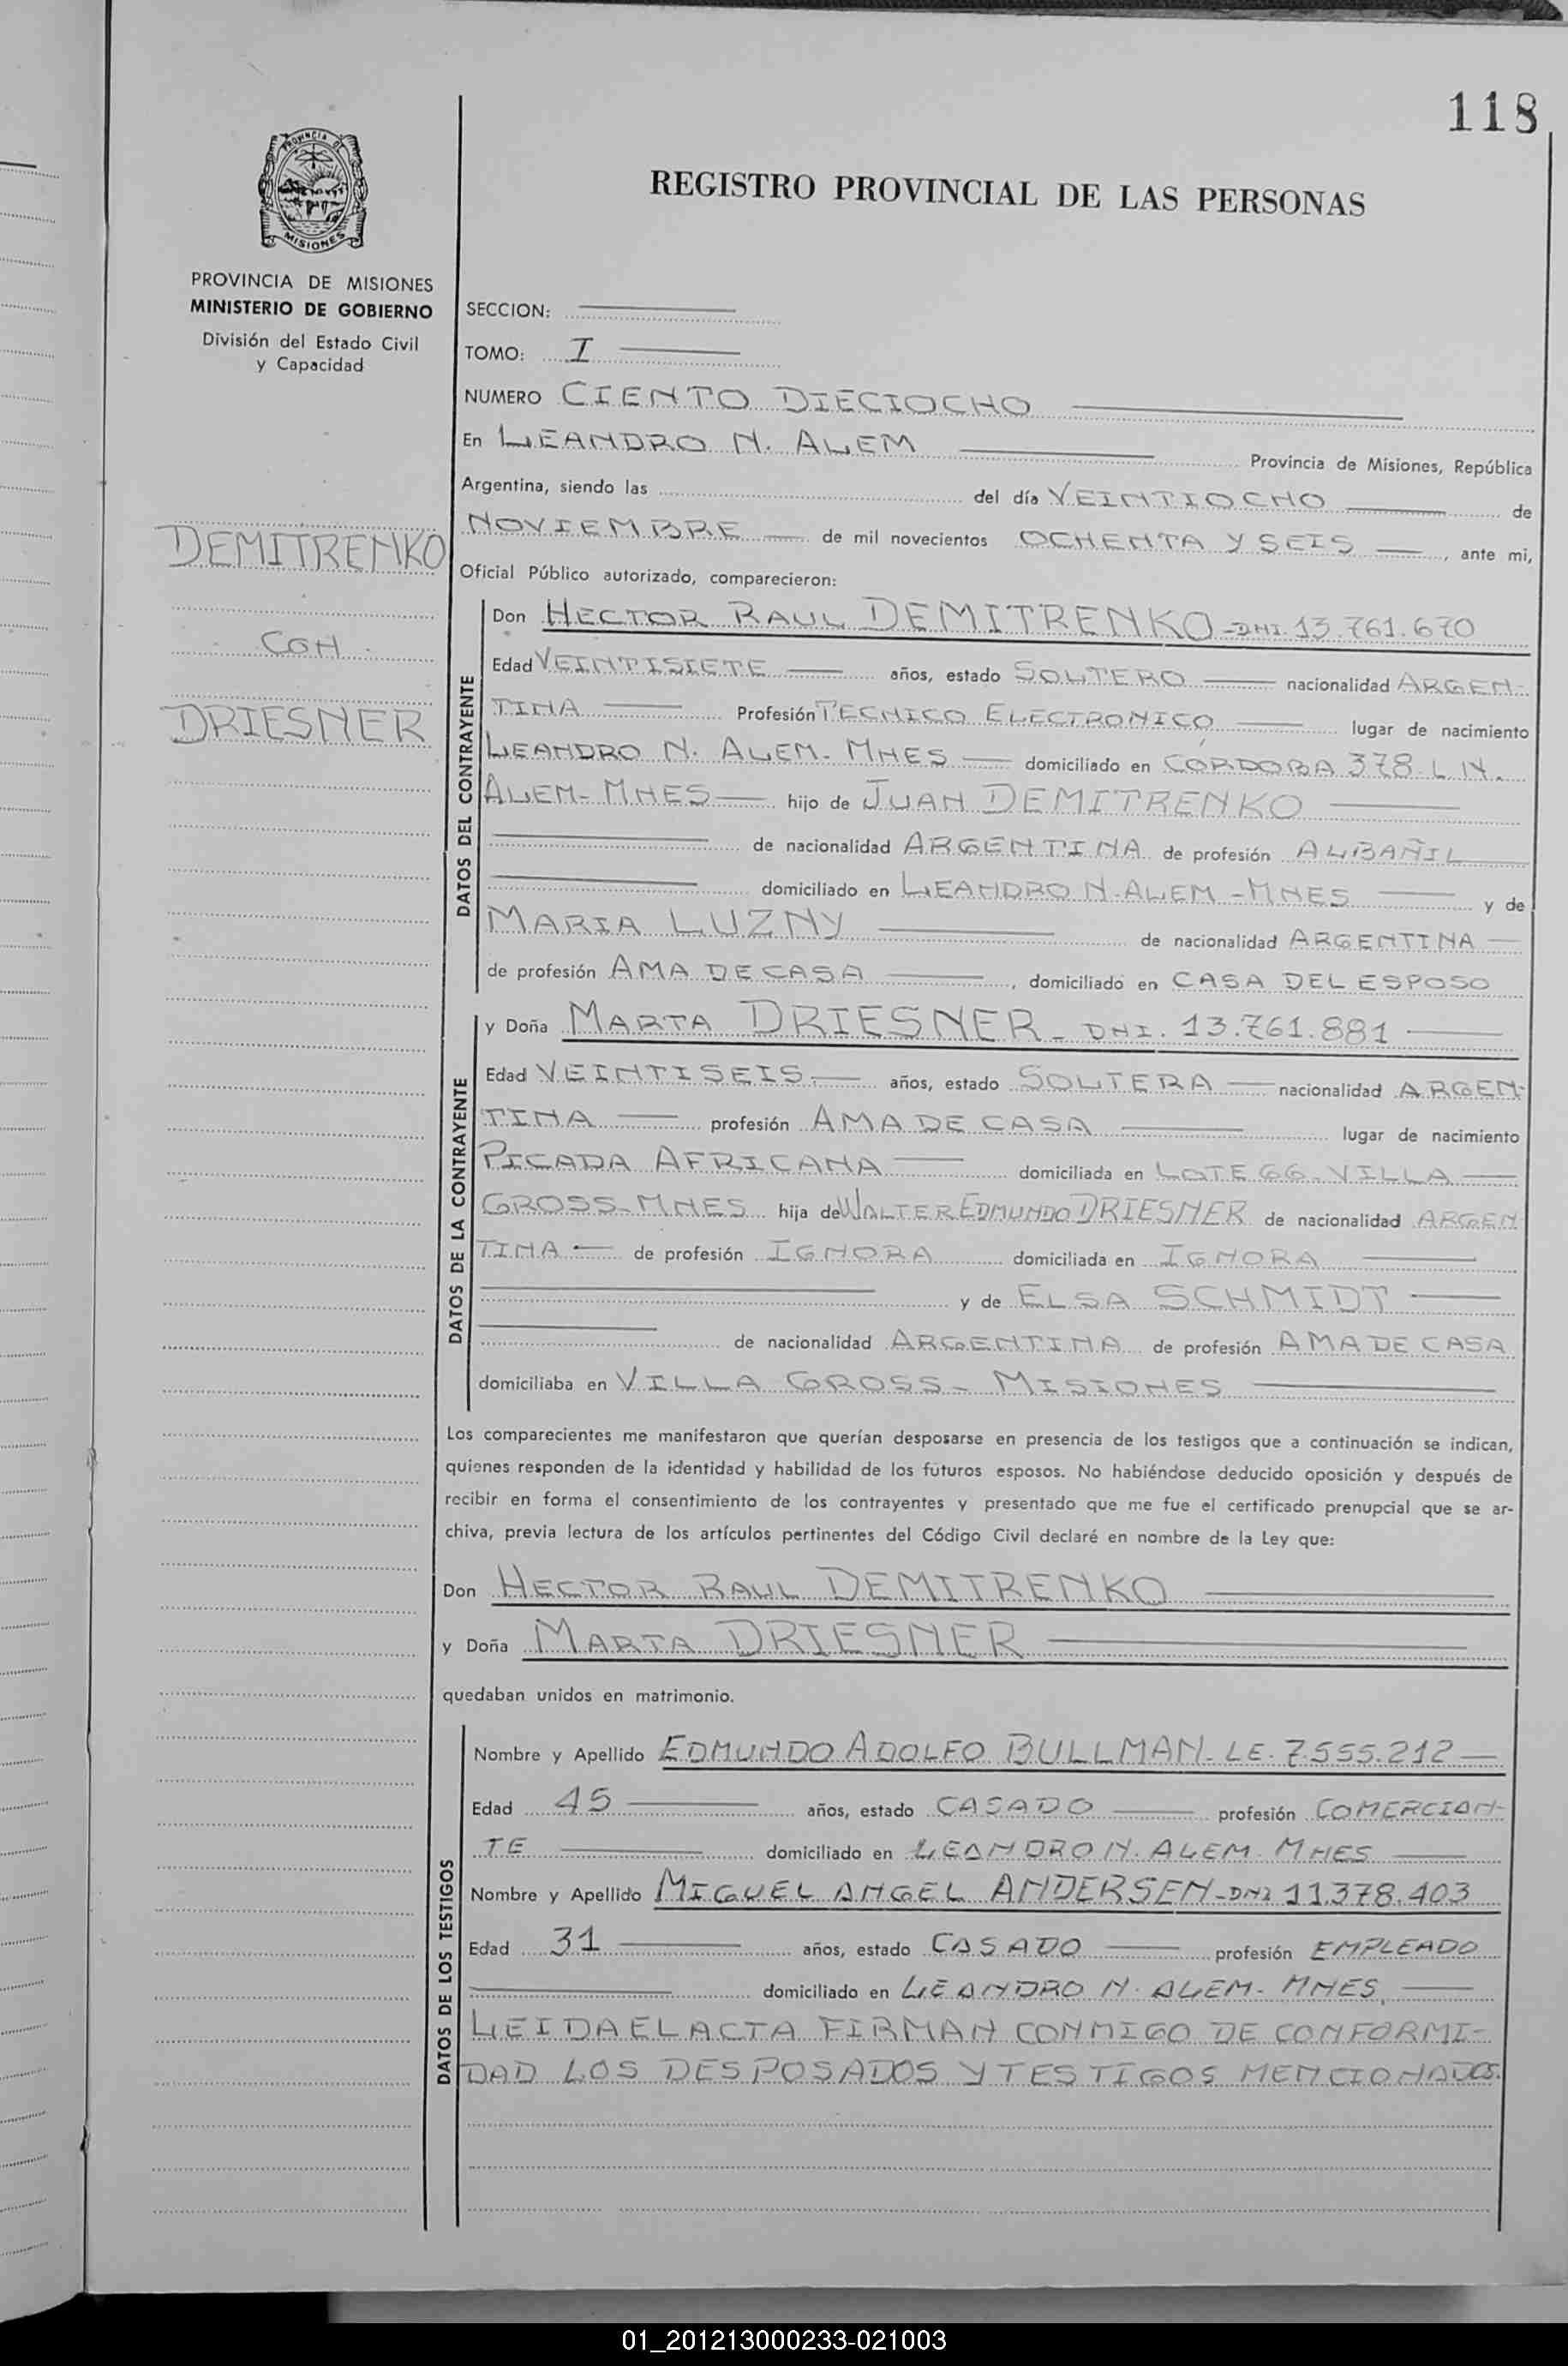 118
PROVINCIA DE
MISIONES
REGISTRO PROVINCIAL DE LAS PERSONAS
PROVINCIA DE MISIONES
MINISTERIO DE GOBIERNO
División del Estado Civil
y Capacidad
DEMITRENKO
CON
DRIESNER
SECCION:
TOMO: I
NUMERO CIENTO DIECIOCHO
En LEANDRO N. ALEM Provincia de Misiones, República
Argentina, siendo las del día VEINTIOCHO de
NOVIEMBRE de mil novecientos OCHENTA Y SEIS, ante mi,
Oficial Público autorizado, comparecieron:
DATOS DEL CONTRAYENTE
Don HECTOR RAUL DEMITRENKO - DNI. 13.761.670
Edad VEINTISIETE años, estado SOLTERO nacionalidad ARGEN-
TINA Profesión TECNICO ELECTRONICO lugar de nacimiento
LEANDRO N. ALEM - MNES domiciliado en CORDOBA 378. L.N.
ALEM - MNES hijo de JUAN DEMITRENKO
de nacionalidad ARGENTINA de profesión ALBAÑIL
domiciliado en LEANDRO N. ALEM - MNES y de
MARIA LUZNY de nacionalidad ARGENTINA
de profesión AMA DE CASA, domiciliado en CASA DEL ESPOSO
DATOS DE LA CONTRAYENTE
y Doña MARTA DRIESNER - DNI. 13.761.881
Edad VEINTISEIS.- años, estado SOLTERA nacionalidad ARGEN-
TINA profesión AMA DE CASA lugar de nacimiento
PICADA AFRICANA domiciliada en LOTE 66. VILLA
GROSS - MNES hija de WALTER EDMUNDO DRIESNER de nacionalidad ARGEN
TINA de profesión IGNORA domiciliada en IGNORA
y de ELSA SCHMIDT
de nacionalidad ARGENTINA de profesión AMA DE CASA
domiciliaba en VILLA GROSS - MISIONES
Los comparecientes me manifestaron que querían desposarse en presencia de los testigos que a continuación se indican,
quienes responden de la identidad y habilidad de los futuros esposos. No habiéndose deducido oposición y después de
recibir en forma el consentimiento de los contrayentes y presentado que me fue el certificado prenupcial que se ar-
chiva, previa lectura de los artículos pertinentes del Código Civil declaré en nombre de la Ley que:
Don HECTOR RAUL DEMITRENKO
y Doña MARTA DRIESNER
quedaban unidos en matrimonio.
DATOS DE LOS TESTIGOS
Nombre y Apellido EDMUNDO ADOLFO BULLMAN - LE. 7.555.212
Edad 45 años, estado CASADO profesión COMERCIAN-
TE domiciliado en LEANDRO N. ALEM. MNES
Nombre y Apellido MIGUEL ANGEL ANDERSEN - DNI 11.378.403
Edad 31 años, estado CASADO profesión EMPLEADO
domiciliado en LEANDRO N. ALEM - MNES.
LEIDA EL ACTA FIRMAN CONMIGO DE CONFORMI-
DAD LOS DESPOSADOS Y TESTIGOS MENCIONADOS.
01_201213000233-021003